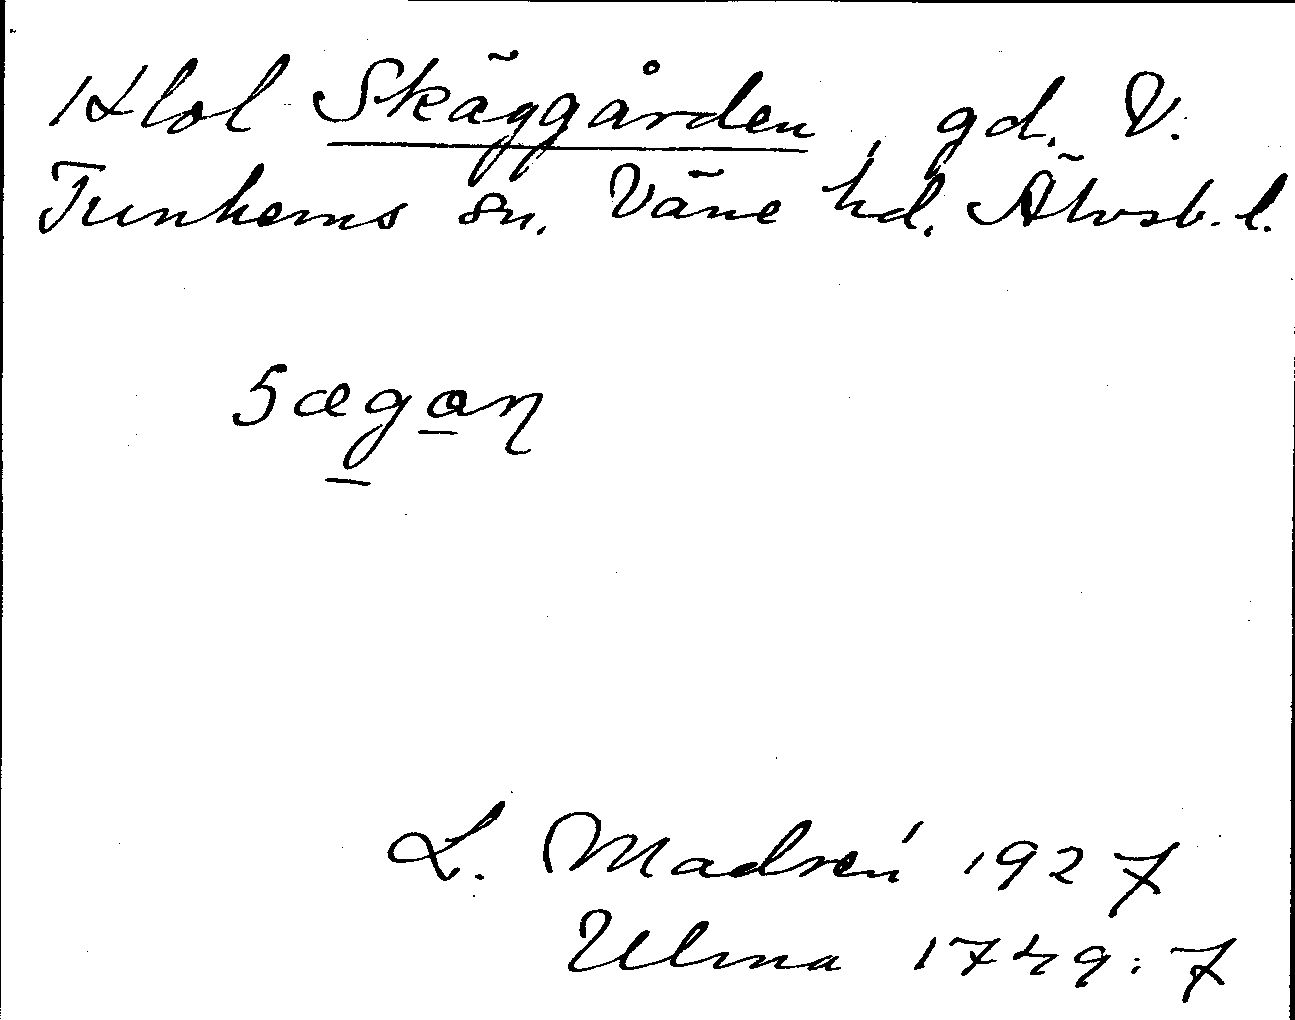 Hol Skäggården, gd. V.
Tunhems sn. Väne hd. Älvsb. l.
L. Madsén 1927
Ulma 1749:7